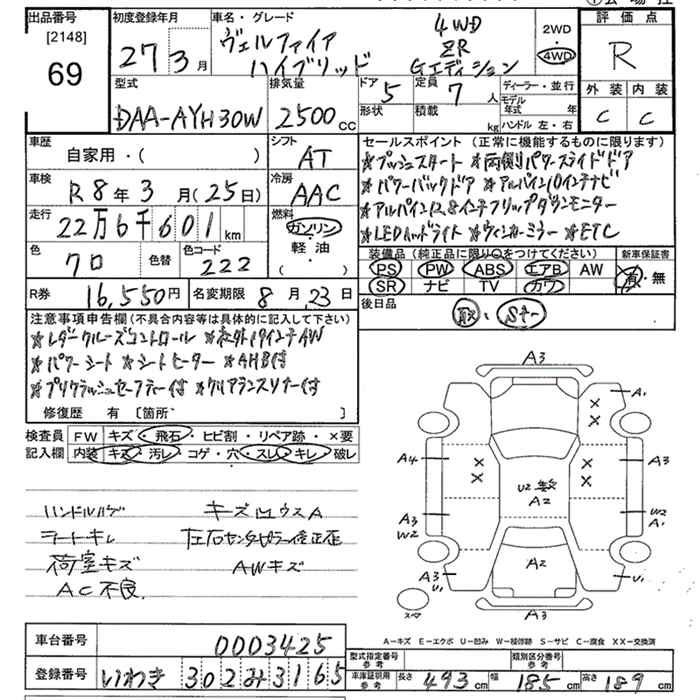 出品番号
[2148]
69
初度登録年月
27年3月
車名・グレード
ヴェルファイア
ハイブリッド
4WD
ZR
Gエディション
2WD
4WD
評価点
R
外装 内装
C C
型式
DAA-AYH30W
排気量
2500cc
ドア 5
形状
定員 7人
積載 kg
ディーラー・並行
モデル年式 年
ハンドル 左・右
車歴
自家用・( )
シフト
AT
車検
R8年3月(25日)
冷房
AAC
走行
22万6千601km
燃料
ガソリン
・軽油
( )
色
クロ
色替
色コード
222
R券
16,550円
名変期限 8月23日
セールスポイント(正常に機能するものに限ります)
☆プッシュスタート ☆両側パワースライドドア
☆パワーバックドア ☆アルパイン10インチナビ
☆アルパイン12.8インチフリップダウンモニター
☆LEDヘッドライト ☆ウィンカーミラー ☆ETC
装備品(純正品に限り○をつけてください)
PS PW ABS エアB AW
SR ナビ TV カワ
新車保証書
有・無
後日品
取・スペアキー
注意事項申告欄(不具合内容等は具体的に記入して下さい)
☆レーダークルーズコントロール ☆社外19インチAW
☆パワーシート ☆シートヒーター ☆AHB付
☆プリクラッシュセーフティー付 ☆クリアランスソナー付
修復歴 有 〔箇所 〕
検査員記入欄
FW キズ・飛石・ヒビ割・リペア跡・×要
内装 キズ・汚レ・コゲ・穴・スレ・キレ・破レ
ハンドルハゲ キズ凹ウスA
シートキレ 左右センターピラー修正歪
荷室キズ AWキズ
AC不良
A3
A1
× × × ×
× ×
A4
A3
U2 多数
A2
A3
W2
W2
A1
A2
A3
U1
U1
A3
A-キズ E-エクボ U-凹み W-補修跡 S-サビ C-腐食 XX-交換済
車台番号
0003425
登録番号
いわき 302 み 3165
型式指定番号
参考
類別区分番号
参考
車庫証明用
参考
長さ 493 cm 幅 185 cm 高さ 189 cm